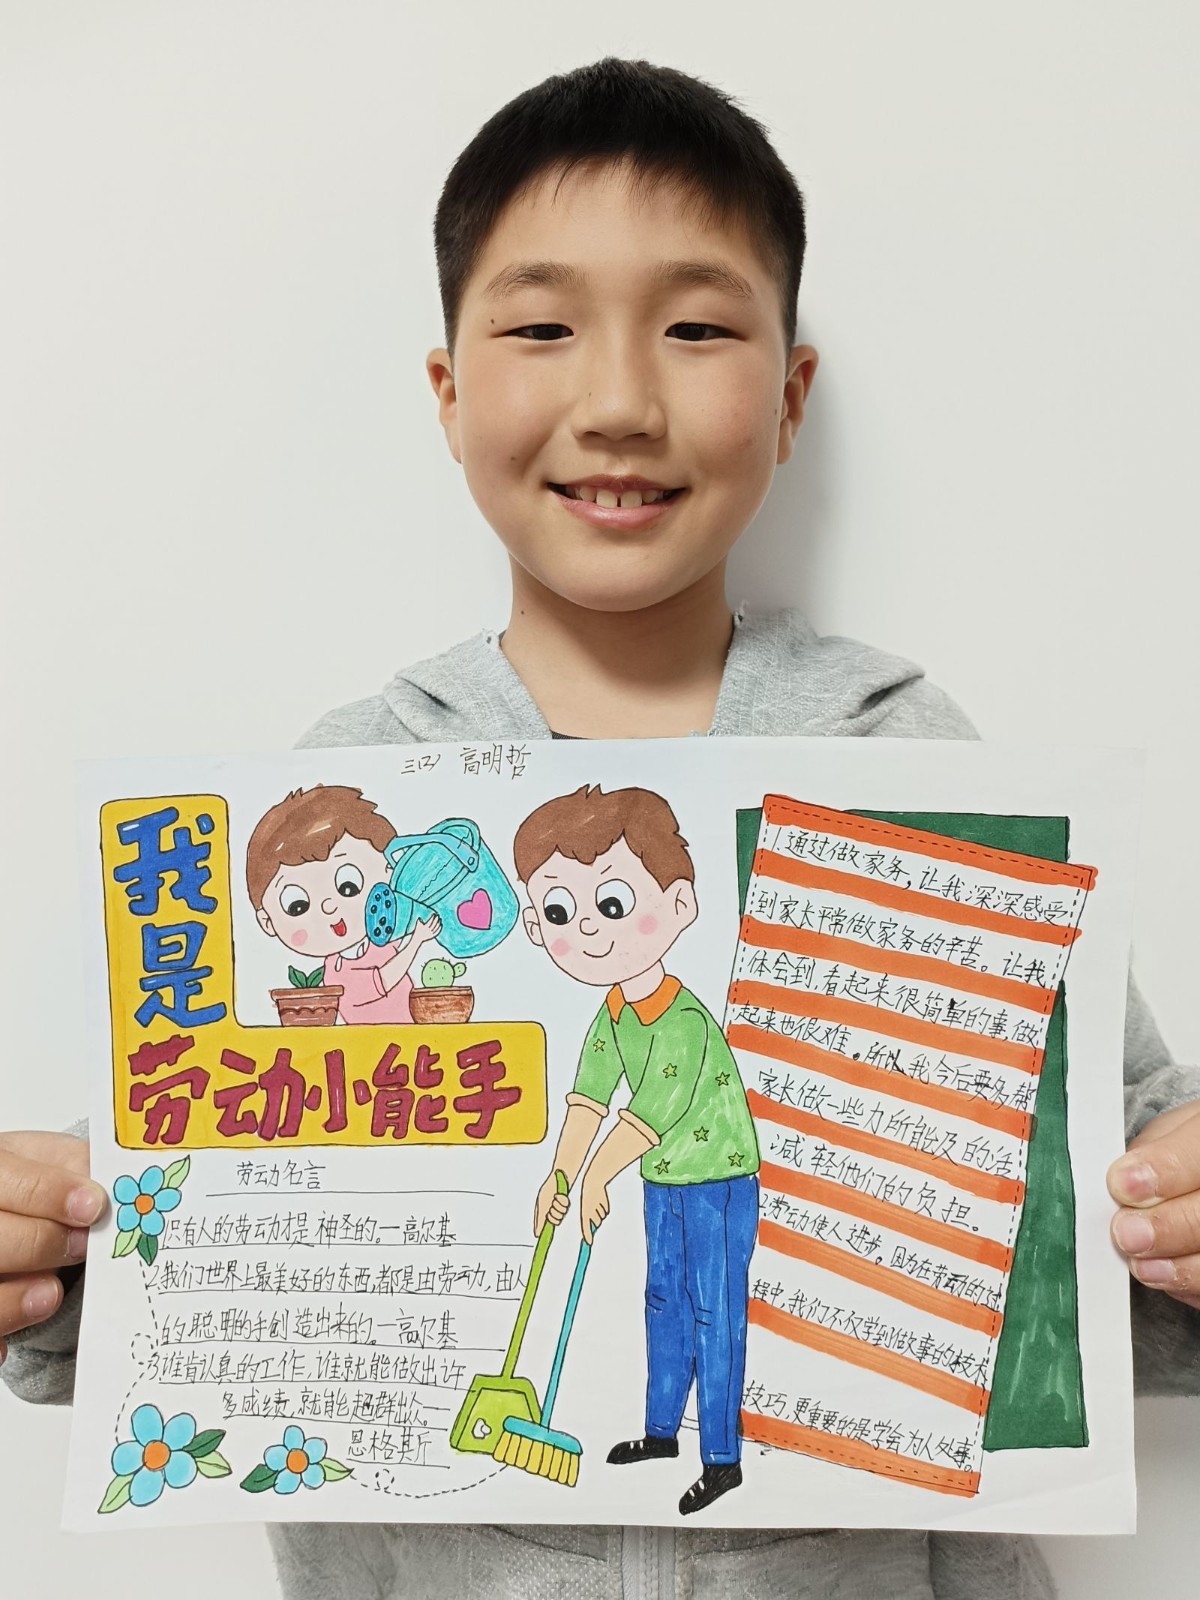 三(四) 高明哲
我
是
劳动小能手
劳动名言
1.只有人的劳动才是神圣的。一高尔基
2.我们世界上最美好的东西,都是由劳动,由人
的聪明的手创造出来的。一高尔基
3.谁肯认真的工作,谁就能做出许
多成绩,就能超群出众。一
恩格斯
1.通过做家务,让我深深感受
到家长平常做家务的辛苦。让我
体会到,看起来很简单的事,做
起来也很难。所以我今后要多帮
家长做一些力所能及的活
,减轻他们的负担。
2.劳动使人进步。因为在劳动的过
程中,我们不仅学到做事的技术
技巧,更重要的是学会为人处事。